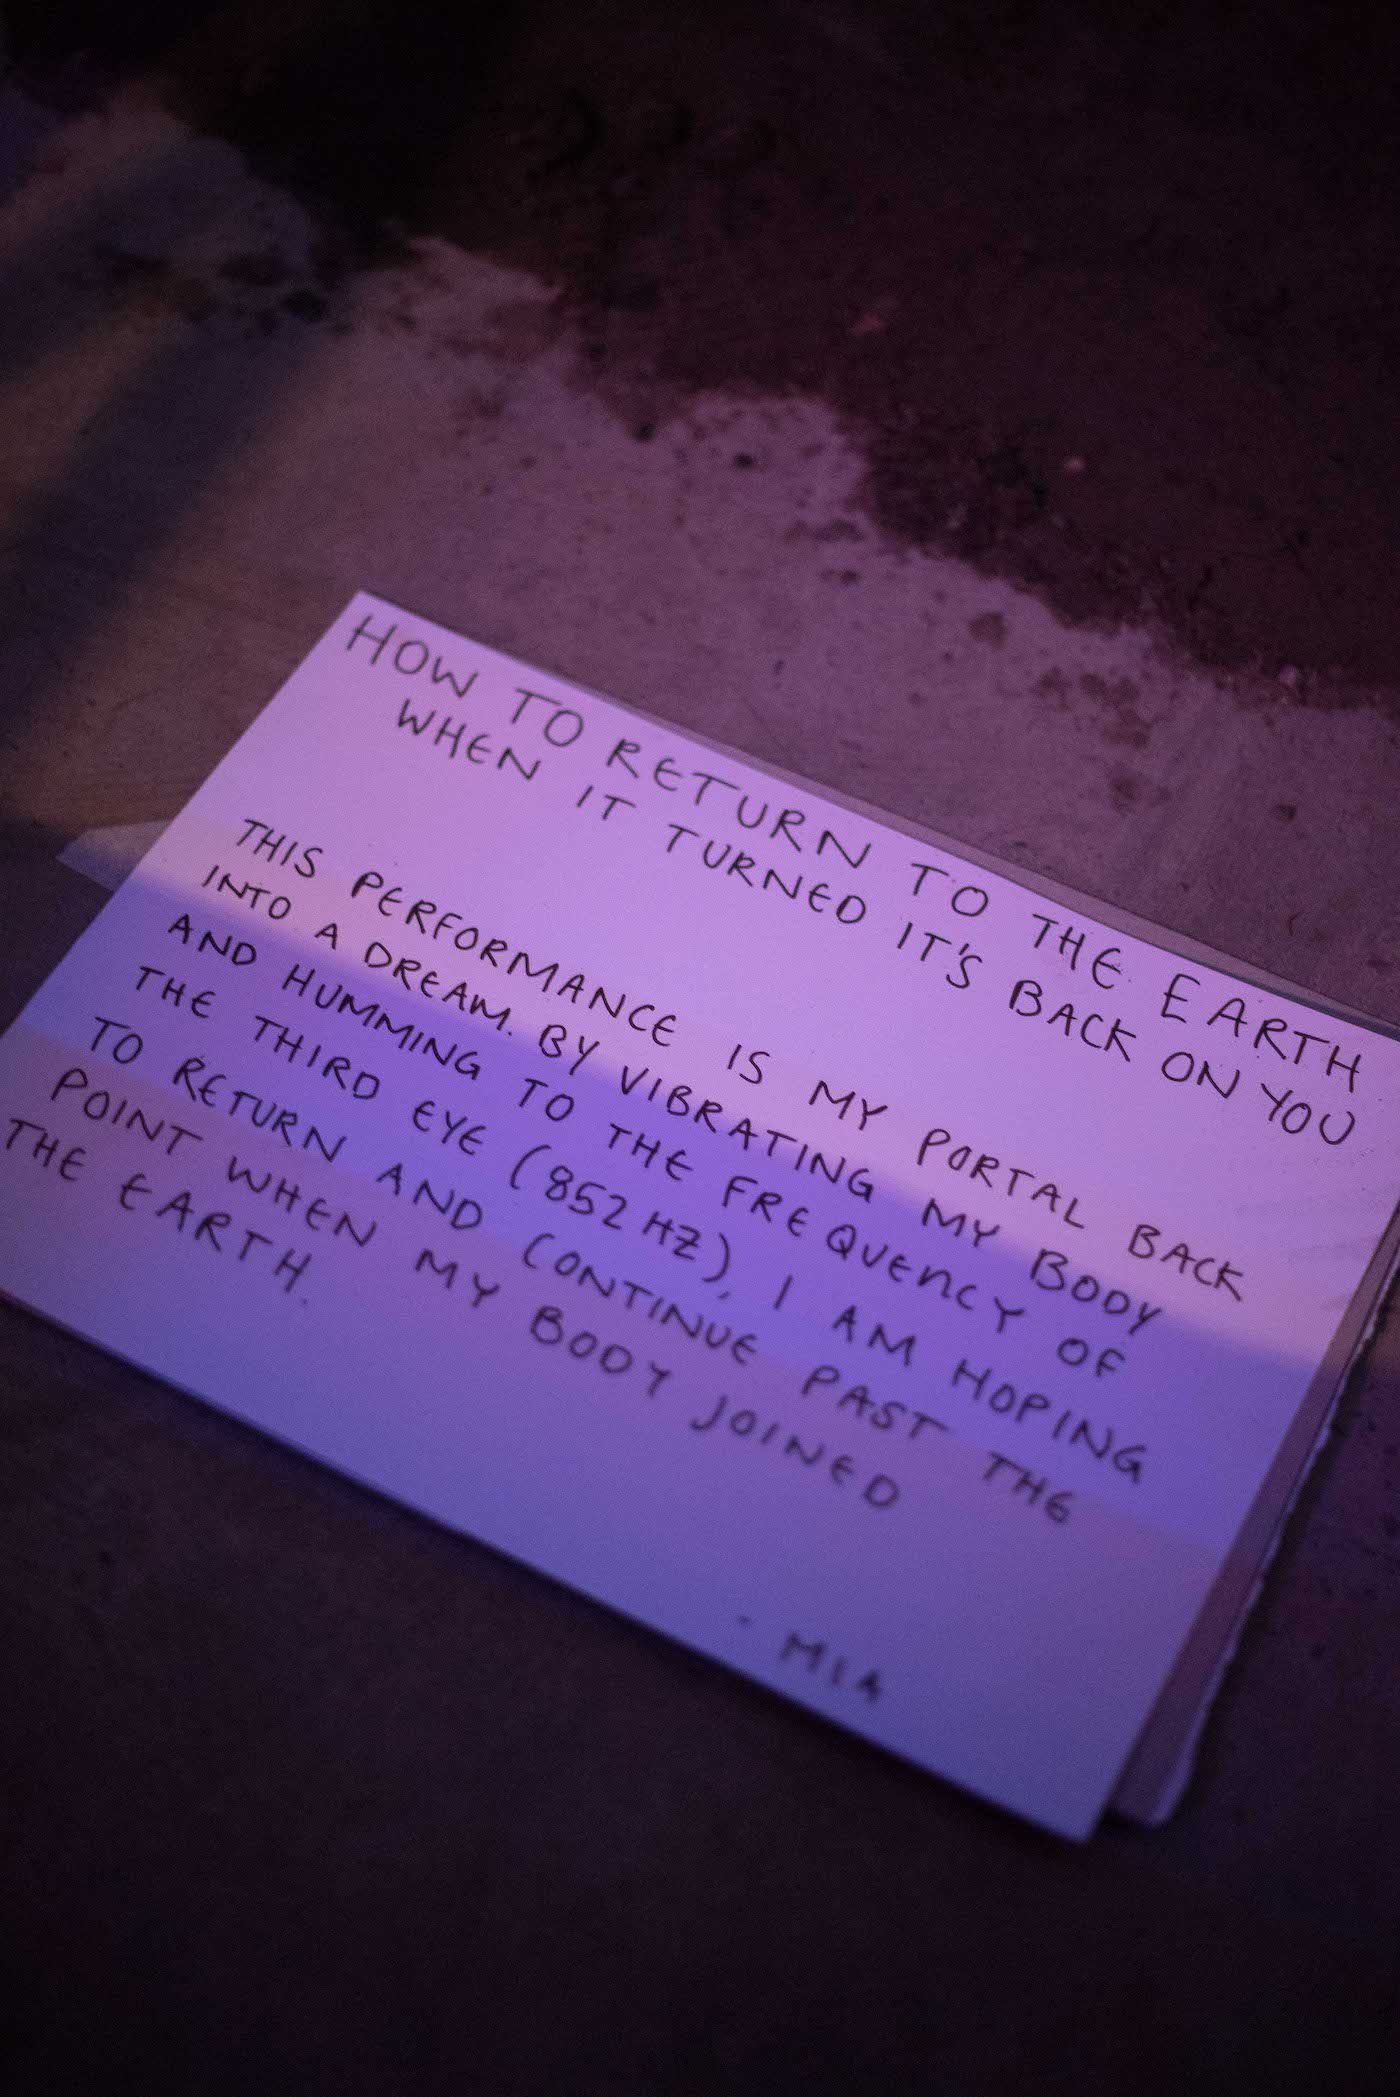 HOW TO RETURN TO THE EARTH
WHEN IT TURNED IT'S BACK ON YOU
THIS PERFORMANCE IS MY PORTAL BACK
INTO A DREAM. BY VIBRATING MY BODY
AND HUMMING TO THE FREQUENCY OF
THE THIRD EYE (852 HZ), I AM HOPING
TO RETURN AND CONTINUE PAST THE
POINT WHEN MY BODY JOINED
THE EARTH.
- MIA